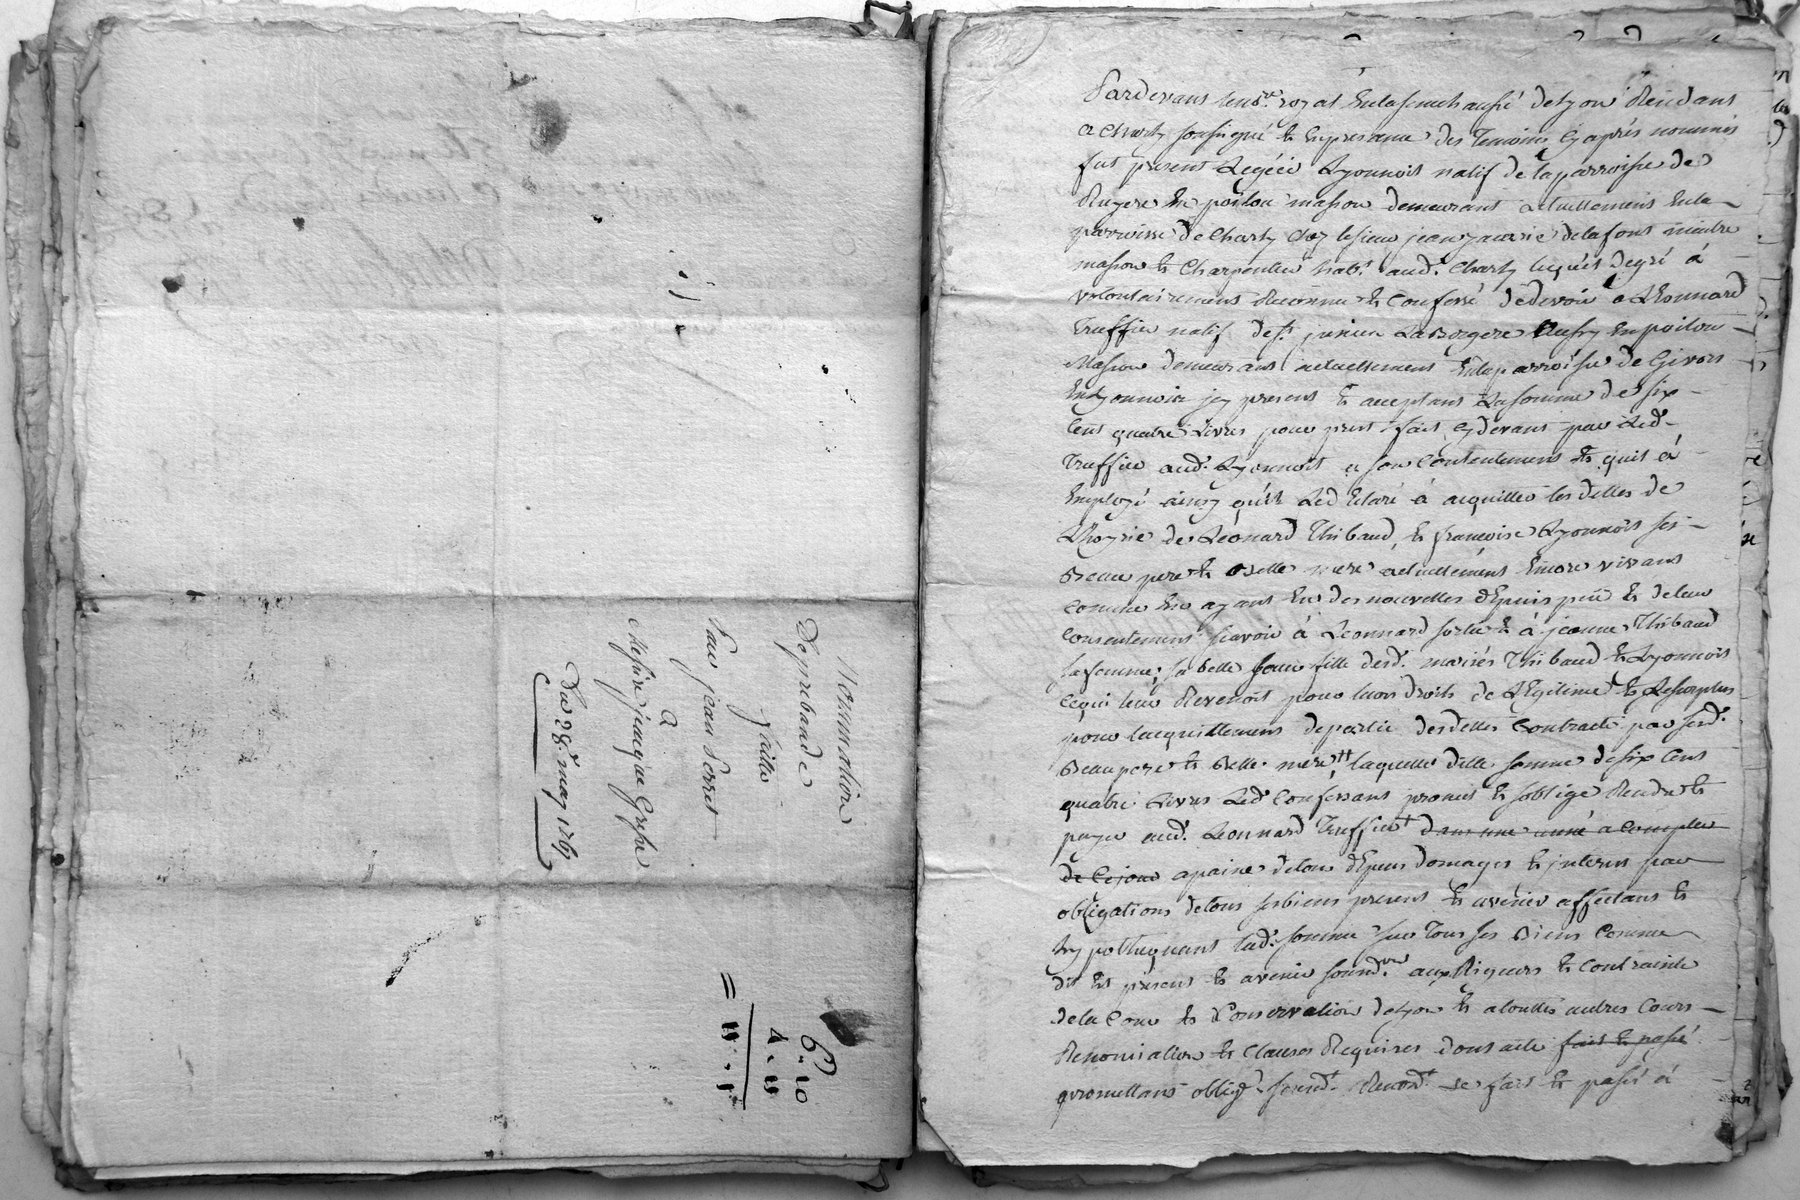 Nommation
De prebande
faitte
Par jean Perret
a
Messire jacque Greffe
Du 28e. may 1767
6 - 10
Pardevant le no.re royal En la senechaussé de Lyon Residant
a Charly soussigné Et En presence des Temoins Cy aprés nommés
fut present Legéé Lyonnois natif de la parroisse de
En poitou masson demeurant actuellement En la
parroisse de Charly Chez le sieur jean delafont meitre
masson Et Charpentier hab.t aud.t Charly lequel de gré á
volontairement Reconnu Et Confessé de devoir a Léonnard
Truffier natif de s.t junien En poitou
Masson demeurant actuellement En la parroisse de Givors
En Lyonnois jcy present Et acceptant La somme de six
Cent quatre Livres pour prest fait cy devant par Led.
Truffier aud.t Lyonnois a son Contentement Et quil á
Employé ainsy quil Led Eclaré á acquitter les dettes de
de Léonard Thibaud, Et françoise Lyonnois ses
Beau pere Et Belle mere actuellement Encore vivant
comme En ayant Eu des nouvelles dEpuis peu Et de leur
Consentement scavoir á Léonnard Et á jeanne Thibaud
sa femme, sa belle soeur fille desd.t mariés Thibaud Et Lyonnois
Ce qui leur Revenoit pour leurs droits de LEgitime Et Le surplus
pour lacquittement de partie des dettes Contracté par sesd.t
Beau pere Et Belle mere, laquelle ditte somme de six Cent
quatre Livres Led. Confessant promet Et soblige Rendre Et
payer aud.t Léonnard Truffier dans une année a Compter
de Ce jour a paine de tous dEpens domages Et jnterest par
obligations de tous ses biens present Et avenir affectant Et
hypothequant lad. somme sur Tous ses Biens Comme
dit Est present Et avenir aux Rigueurs Et Contrainte
de la Cour Et Conservation de Lyon Et a touttes autres Cours
Renonciation Et Clauses Requises dont acte fait Et passé
promettant oblig.t soumd.t Renond.t se fait Et passé á